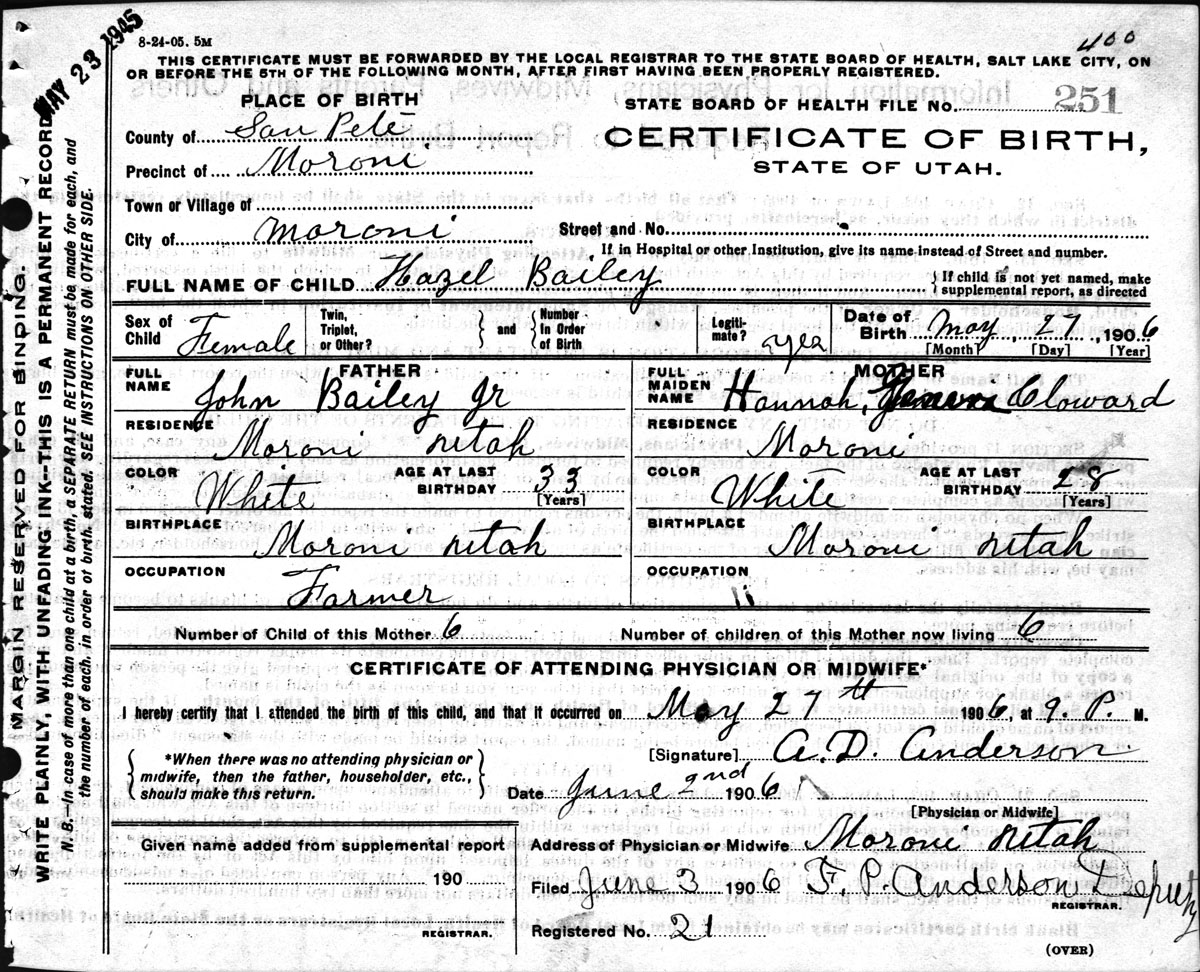 MAY 23 1945
8-24-05. 5M
400
THIS CERTIFICATE MUST BE FORWARDED BY THE LOCAL REGISTRAR TO THE STATE BOARD OF HEALTH, SALT LAKE CITY, ON
OR BEFORE THE 5TH OF THE FOLLOWING MONTH, AFTER FIRST HAVING BEEN PROPERLY REGISTERED.
PLACE OF BIRTH
STATE BOARD OF HEALTH FILE NO. 251
County of San Pete
CERTIFICATE OF BIRTH,
Precinct of Moroni
STATE OF UTAH.
Town or Village of
City of Moroni Street and No.
If in Hospital or other Institution, give its name instead of Street and number.
FULL NAME OF CHILD Hazel Bailey { If child is not yet named, make supplemental report, as directed
Sex of Child Female Twin, Triplet, or Other? } and { Number in Order of Birth Legitimate? yea Date of Birth May, 27, 1906
[Month] [Day] [Year]
FATHER MOTHER
FULL NAME John Bailey Jr FULL MAIDEN NAME Hannah, Cloward
RESIDENCE Moroni Utah RESIDENCE Moroni
COLOR White AGE AT LAST BIRTHDAY 33 [Years] COLOR White AGE AT LAST BIRTHDAY 28 [Years]
BIRTHPLACE Moroni Utah BIRTHPLACE Moroni Utah
OCCUPATION Farmer OCCUPATION
Number of Child of this Mother 6 Number of children of this Mother now living 6
CERTIFICATE OF ATTENDING PHYSICIAN OR MIDWIFE*
I hereby certify that I attended the birth of this child, and that it occurred on May 27th 1906, at 9. P. M.
[Signature] A. D. Anderson
{ *When there was no attending physician or midwife, then the father, householder, etc., should make this return. }
Date June 2nd 1906
[Physician or Midwife]
Given name added from supplemental report
Address of Physician or Midwife Moroni Utah
190
Filed June 3 1906 F. P. Anderson Deputy
REGISTRAR.
REGISTRAR.
Registered No. 21
(OVER)
MARGIN RESERVED FOR BINDING.
WRITE PLAINLY, WITH UNFADING INK—THIS IS A PERMANENT RECORD
N. B.—In case of more than one child at a birth, a SEPARATE RETURN must be made for each, and
the number of each, in order of birth, stated. SEE INSTRUCTIONS ON OTHER SIDE.